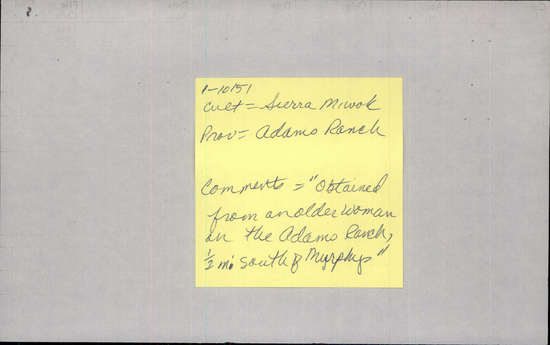 1-10151
Cult = Sierra Miwok
Prov = Adams Ranch
Comments = "Obtained
from an older woman
on the Adams Ranch,
1/2 mi south of Murphys"